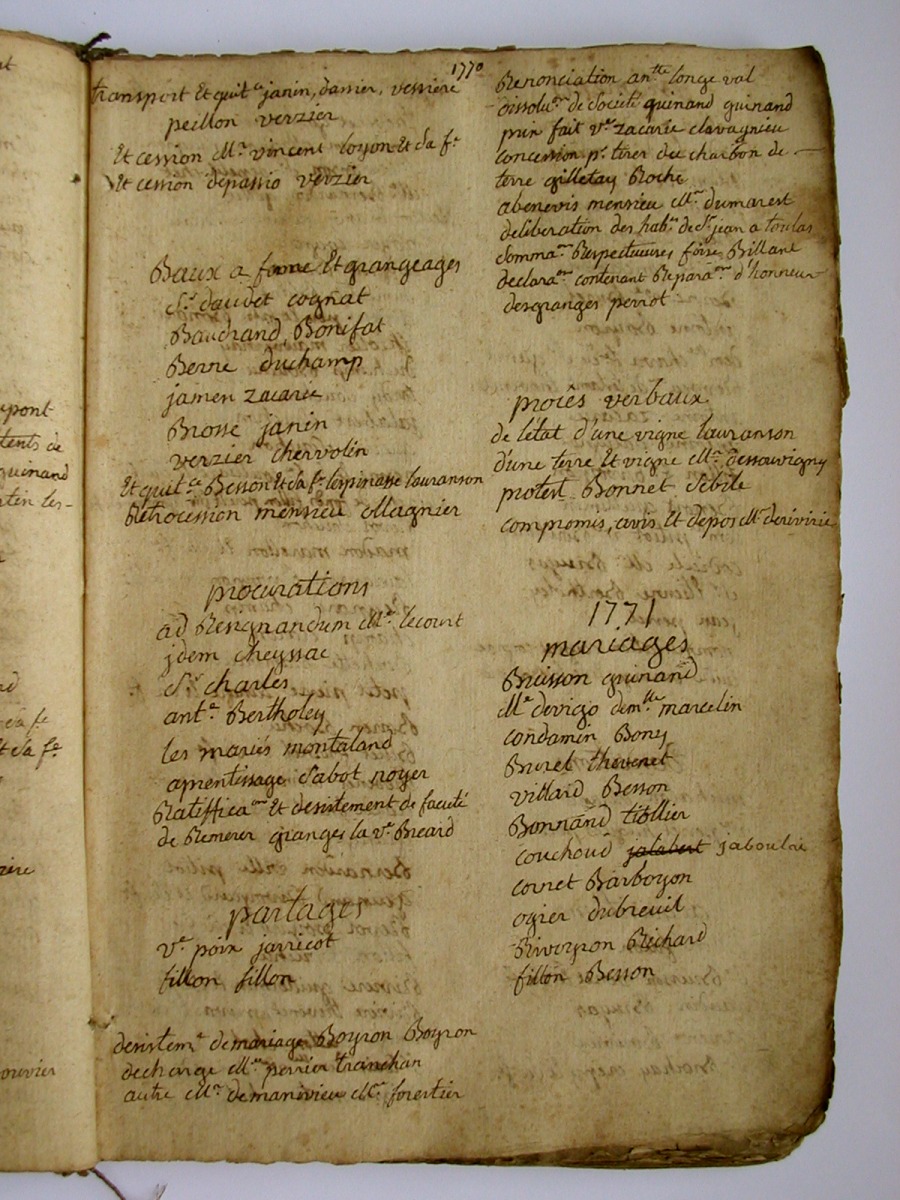 1770
transport Et quit.ce janin, darier, vessiere
peillon verzier
Et cession Mr. vincent loyon Et sa fe.
Et cession depassio verzier
Baux a ferme Et grangeages
Sr. daudet cognat
Baudrand, Bonifat
Berne duchamp
jamen zacarie
Brosse janin
verzier chervolin
Et quit.ce Besson Et sa fe. lespinasse lauranson
Retrocession mensieu Magnier
procurations
ad Resignandum Mre. lecourt
jdem cheyssac
Sr. charles
ant.e Bertholey
les mariés montaland
aprentissage Sabot noyer
Ratiffica.on Et desistement de faculté
de Remerer granges la ve. Breard
partages
ve. poix jarricot
fillon fillon
desistem.t de mariage Boyron Boyron
decharge Mre. perrier tranchan
autre Mr. demanivieu Mre. forestier
Renonciation an.tte longe val
dissolu.on de Societé guinand guinand
prix fait ve. zacarie clavagnieu
concession pr. tirer du charbon de
terre gilletay Roche
abenevis mensieu Mr. dumarest
deliberation des hab.ts de St. jean a toulas
Somma.on Respectueuses foise Brillant
declara.on contenant Repara.on d'honneur
desgranges perrot
procès verbaux
de létat d'une vigne lauranson
d'une terre Et vigne Mr. dessouvigny
protest Bonnet Sibile
compromis, avis Et depos Mr. derivirie
1771
mariages
Buisson guinand
Me devigo dem.lle marcelin
condamin Bony
Burel thevenet
villard Besson
Bonnand tiollier
couchoud jalabert jaboulai
cornet Barboyon
ogier dubreuil
Rivoyron Richard
fillon Besson